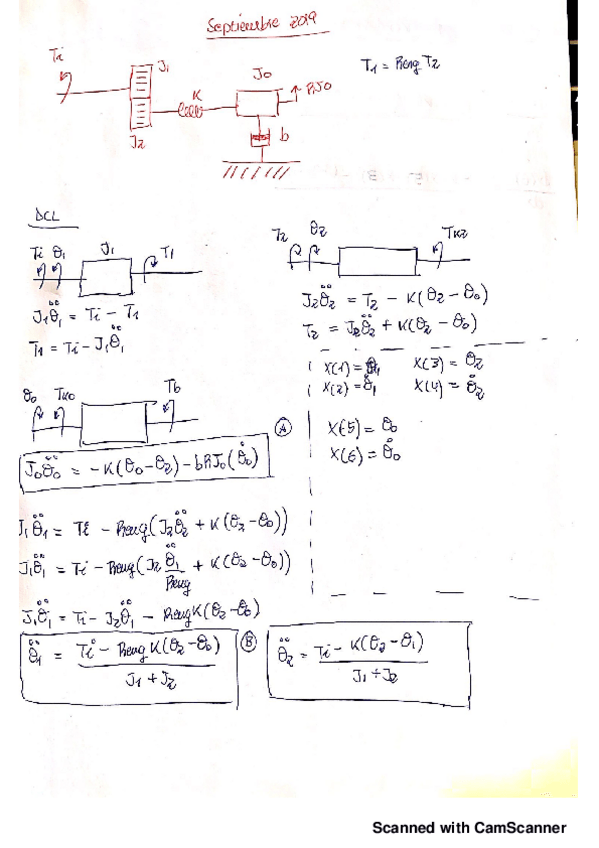 Septiembre 2019
Ti
J1
J2
K
J0
RJ0
b
T1 = Reng T2
DCL
Ti θ1 J1 T1
J1θ̈1 = Ti - T1
T1 = Ti - J1θ̈1
T2 θ2 TK2
J2θ̈2 = T2 - K(θ2 - θ0)
T2 = J2θ̈2 + K(θ2 - θ0)
X(1) = θ1 X(3) = θ2
X(2) = θ̇1 X(4) = θ̇2
X(5) = θ0
X(6) = θ̇0
θ0 TK0 Tb
J0θ̈0 = -K(θ0 - θ2) - bRJ0(θ̇0)
A
J1θ̈1 = Ti - Reng(J2θ̈2 + K(θ2 - θ0))
J1θ̈1 = Ti - Reng(J2 θ̈1/Reng + K(θ2 - θ0))
J1θ̈1 = Ti - J2θ̈1 - Reng K(θ2 - θ0)
θ̈1 = Ti - Reng K(θ2 - θ0) / J1 + J2
B
θ̈2 = Ti - K(θ2 - θ1) / J1 + J2
Scanned with CamScanner